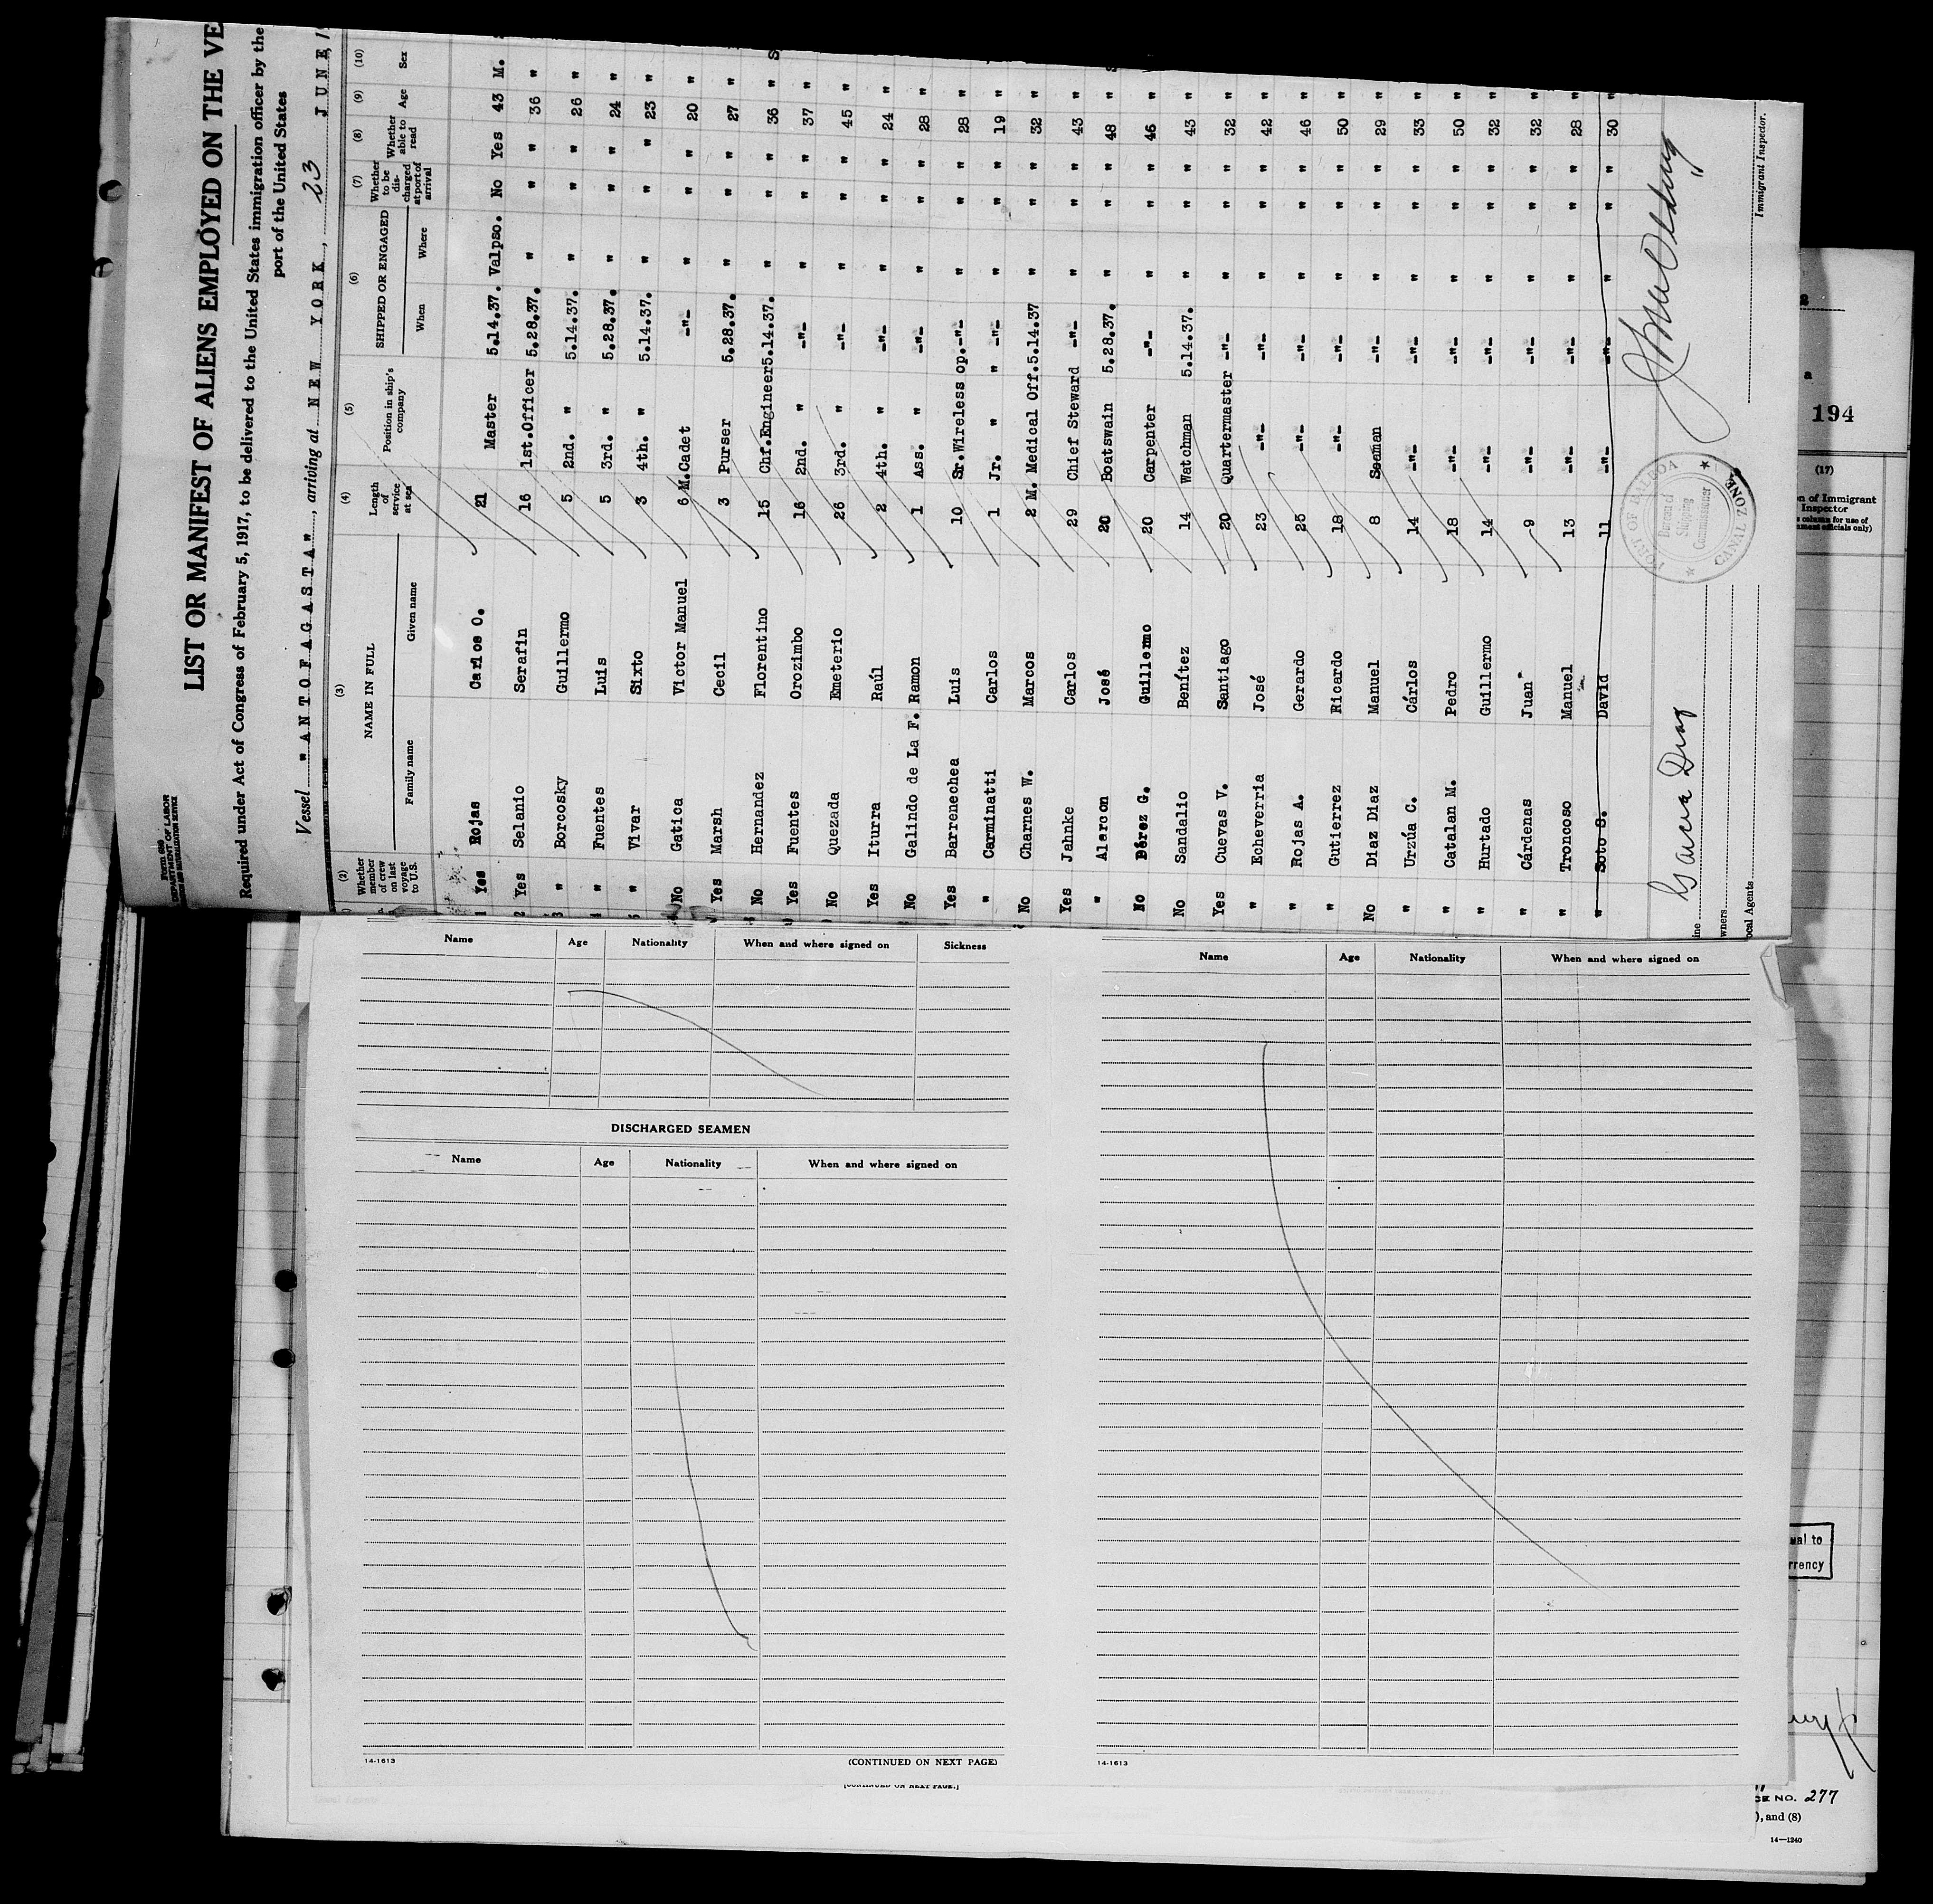 Form 689
DEPARTMENT OF LABOR
LIST OR MANIFEST OF ALIENS EMPLOYED ON THE VE
Required under Act of Congress of February 5, 1917, to be delivered to the United States immigration officer by the
port of the United States
Vessel "ANTOFAGASTA", arriving at NEW YORK, 23 JUNE, 1
(2) (3) (4) (5) (6) (7) (8) (9) (10)
Whether member of crew on last voyage to U.S. NAME IN FULL Family name Given name Length of service at sea Position in ship's company SHIPPED OR ENGAGED When Where Whether to be discharged at port of arrival Whether able to read Age Sex
1 Yes Rojas Carlos O. 21 Master 5.14.37. Valpso. No Yes 43 M.
2 Yes Selanio Serafin 16 1st.Officer 5.28.37. " " " 36 "
3 " Borcosky Guillermo 5 2nd. " 5.14.37. " " " 26 "
4 " Fuentes Luis 5 3rd. " 5.28.37. " " " 24 "
" Vivar Sixto 3 4th. " 5.14.37. " " " 23 "
No Gatica Victor Manuel 6 M. Cadet -"- " " " 20 "
Yes Marsh Cecil 3 Purser 5.28.37. " " " 27 "
No Hernandez Florentino 15 Chf.Engineer 5.14.37. " " " 36 " S
Yes Fuentes Orozimbo 16 2nd. " -"- " " " 37 "
No Quezada Emeterio 26 3rd. " -"- " " " 45 "
Yes Iturra Raúl 2 4th. " -"- " " " 24 "
No Galindo de La F. Ramon 1 Ass. " -"- " " " 28 "
Yes Barrenechea Luis 10 Sr.Wireless op. -"- " " " 28 "
" Carminatti Carlos 1 Jr. " " -"- " " " 19 "
No Charnes W. Marcos 2 M. Medical Off. 5.14.37 " " " 32 "
Yes Jahnke Carlos 29 Chief Steward -"- " " " 43 "
" Alarcon José 20 Boatswain 5.28.37. " " " 48 "
No Pérez G. Guillermo 20 Carpenter -"- " " " 46 "
No Sandalio Benítez 14 Watchman 5.14.37. " " " 43 "
Yes Cuevas V. Santiago 20 Quartermaster -"- " " " 32 "
" Echeverria José 23 -"- -"- " " " 42 "
" Rojas A. Gerardo 25 -"- -"- " " " 46 "
" Gutierrez Ricardo 18 -"- -"- " " " 50 "
No Diaz Diaz Manuel 8 Seaman -"- " " " 29 "
" Urzúa C. Cárlos 14 -"- -"- " " " 33 "
" Catalan M. Pedro 18 -"- -"- " " " 50 "
" Hurtado Guillermo 14 -"- -"- " " " 32 "
" Cárdenas Juan 9 -"- -"- " " " 32 "
" Troncoso Manuel 13 -"- -"- " " " 28 "
" Soto S. David 11 -"- -"- " " " 30 "
PORT OF BALBOA
Bureau of
Shipping
Commissioner
CANAL ZONE
ine
wners
ocal Agents
Immigrant Inspector.
2
a
194
(17)
on of Immigrant
Inspector
column for use of
ment officials only)
Name Age Nationality When and where signed on Sickness
DISCHARGED SEAMEN
Name Age Nationality When and where signed on
14-1613 (CONTINUED ON NEXT PAGE)
[CONTINUED ON NEXT PAGE.]
Name Age Nationality When and where signed on
14-1613
ual to
rrency
CE NO. 277
), and (8)
14—1240